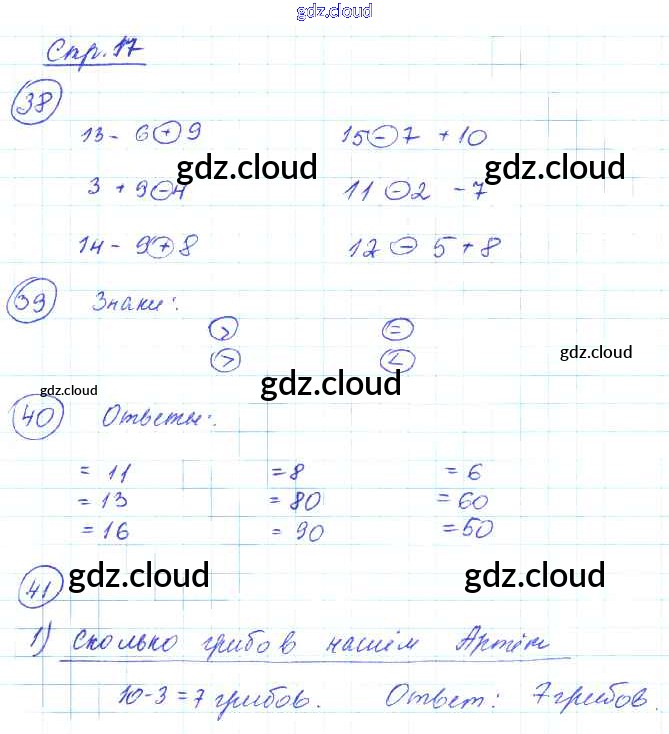 gdz.cloud
Стр. 17
38
13 - 6 + 9 15 - 7 + 10
gdz.cloud gdz.cloud
3 + 9 - 4 11 - 2 - 7
14 - 9 + 8 12 - 5 + 8
39 Знаки:
> =
> <
gdz.cloud
gdz.cloud gdz.cloud
40 Ответы:
= 11 = 8 = 6
= 13 = 80 = 60
= 16 = 90 = 50
41 gdz.cloud gdz.cloud
1) Сколько грибов нашём Артём
10-3=7 грибов. Ответ: 7 грибов.